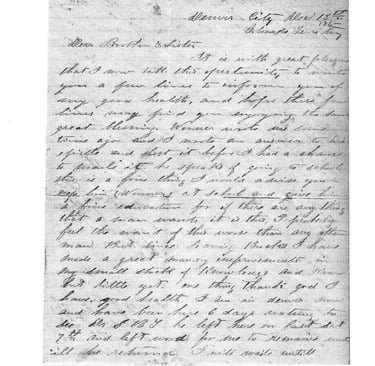 Denver City Dec 13th
Colorado Territory
Dear Brother & Sister
It is with great pleasure
that I now take this opportunity to write
you a few lines to inform you of
my good health, and hope these few
lines may find you enjoying the same
great blessing. wrote me some
time ago and I wrote an answer to his
and lost it before I had a chance
to mail it. he speaks of going to school
this is a fine thing I would advise you to
keep him at school and give him
a fine education for if there is any thing
that a man wants it is this, I probably
feel the want of this worse than any other
man But since leaving I have
made a great many improvements in
my small stock of and know
but little yet. one thing thank god I
have good health, I am in denver now
and have been here 6 days waiting to
see he left here on last
7th and left word for me to remain until
till he returned. I will wait untill